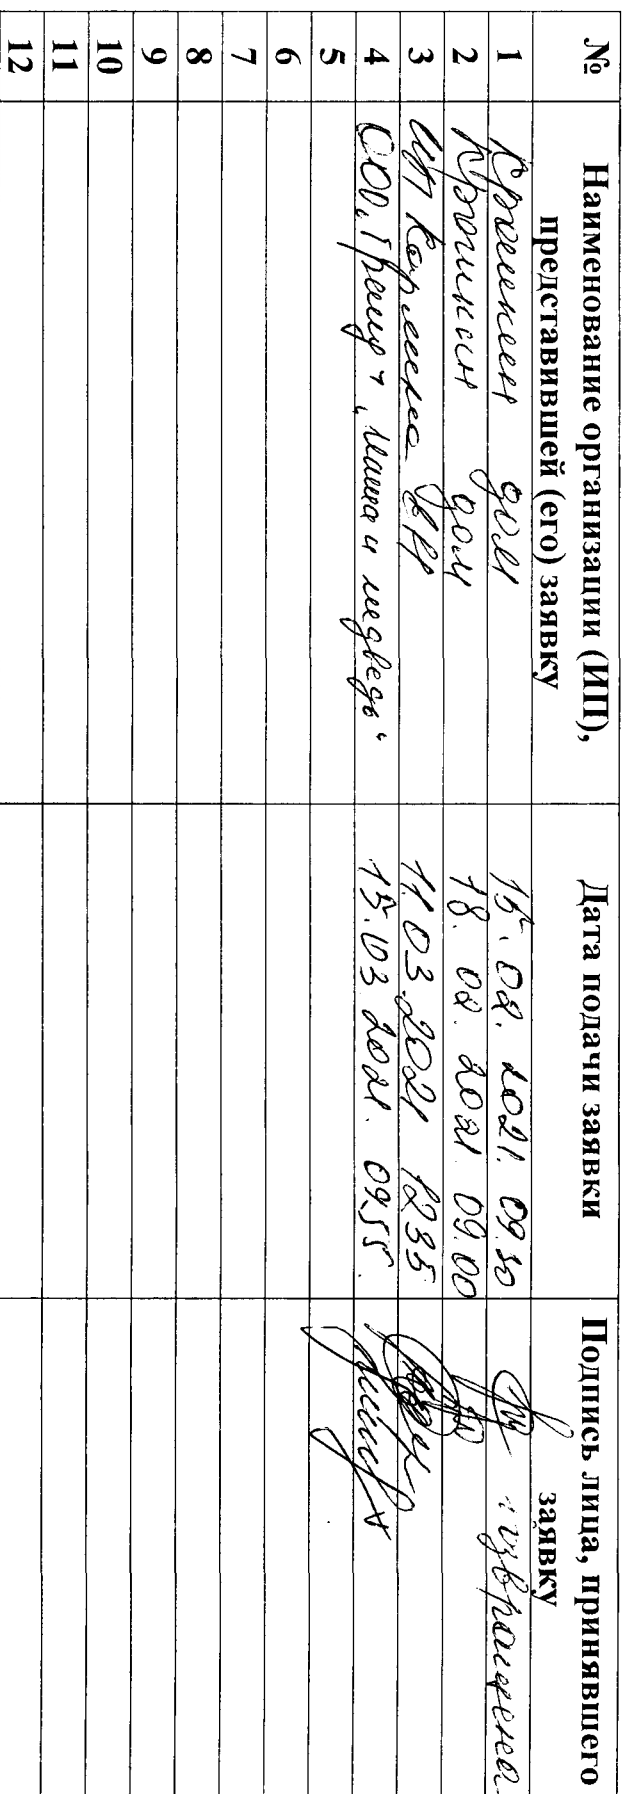 № Наименование организации (ИП), представившей (его) заявку Дата подачи заявки Подпись лица, принявшего заявку
1 Крошкин дом 15.02.2021. 09.30
2 Крошкин дом 18.02.2021 09.00
3 ИП 11.03.2021 12 35
4 ООО „Гранд" „Маша и медведь" 15.03 2021. 09.55.
5
6
7
8
9
10
11
12